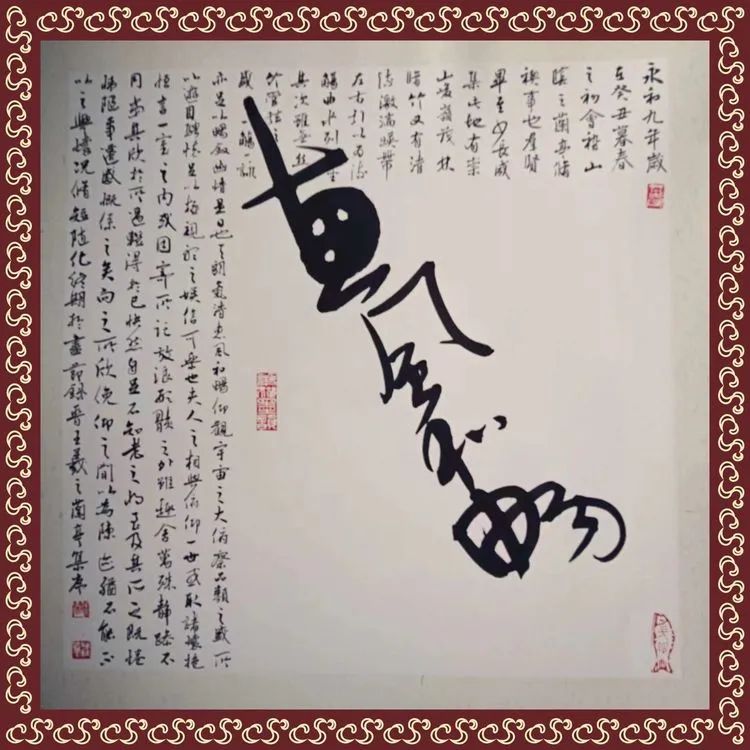 永和九年歲
在癸丑暮春
之初會稽山
陰之蘭亭脩
禊事也羣賢
畢至少長咸
集此地有崇
山峻嶺茂林
脩竹又有清
流激湍暎帶
左右引以為流
觴曲水列坐
其次雖無絲
竹管弦之
盛一觴一詠
惠風和暢
亦足以暢敘幽情是日也天朗氣清惠風和暢仰觀宇宙之大俯察品類之盛所
以遊目騁懷足以極視聽之娛信可樂也夫人之相與俯仰一世或取諸懷抱
悟言一室之內或因寄所託放浪形骸之外雖趣舍萬殊靜躁不
同當其欣於所遇蹔得於己快然自足不知老之將至及其所之既惓
情隨事遷感慨係之矣向之所欣俛仰之間以為陳迹猶不能不
以之興懷況脩短隨化終期於盡節錄晉王羲之蘭亭集序